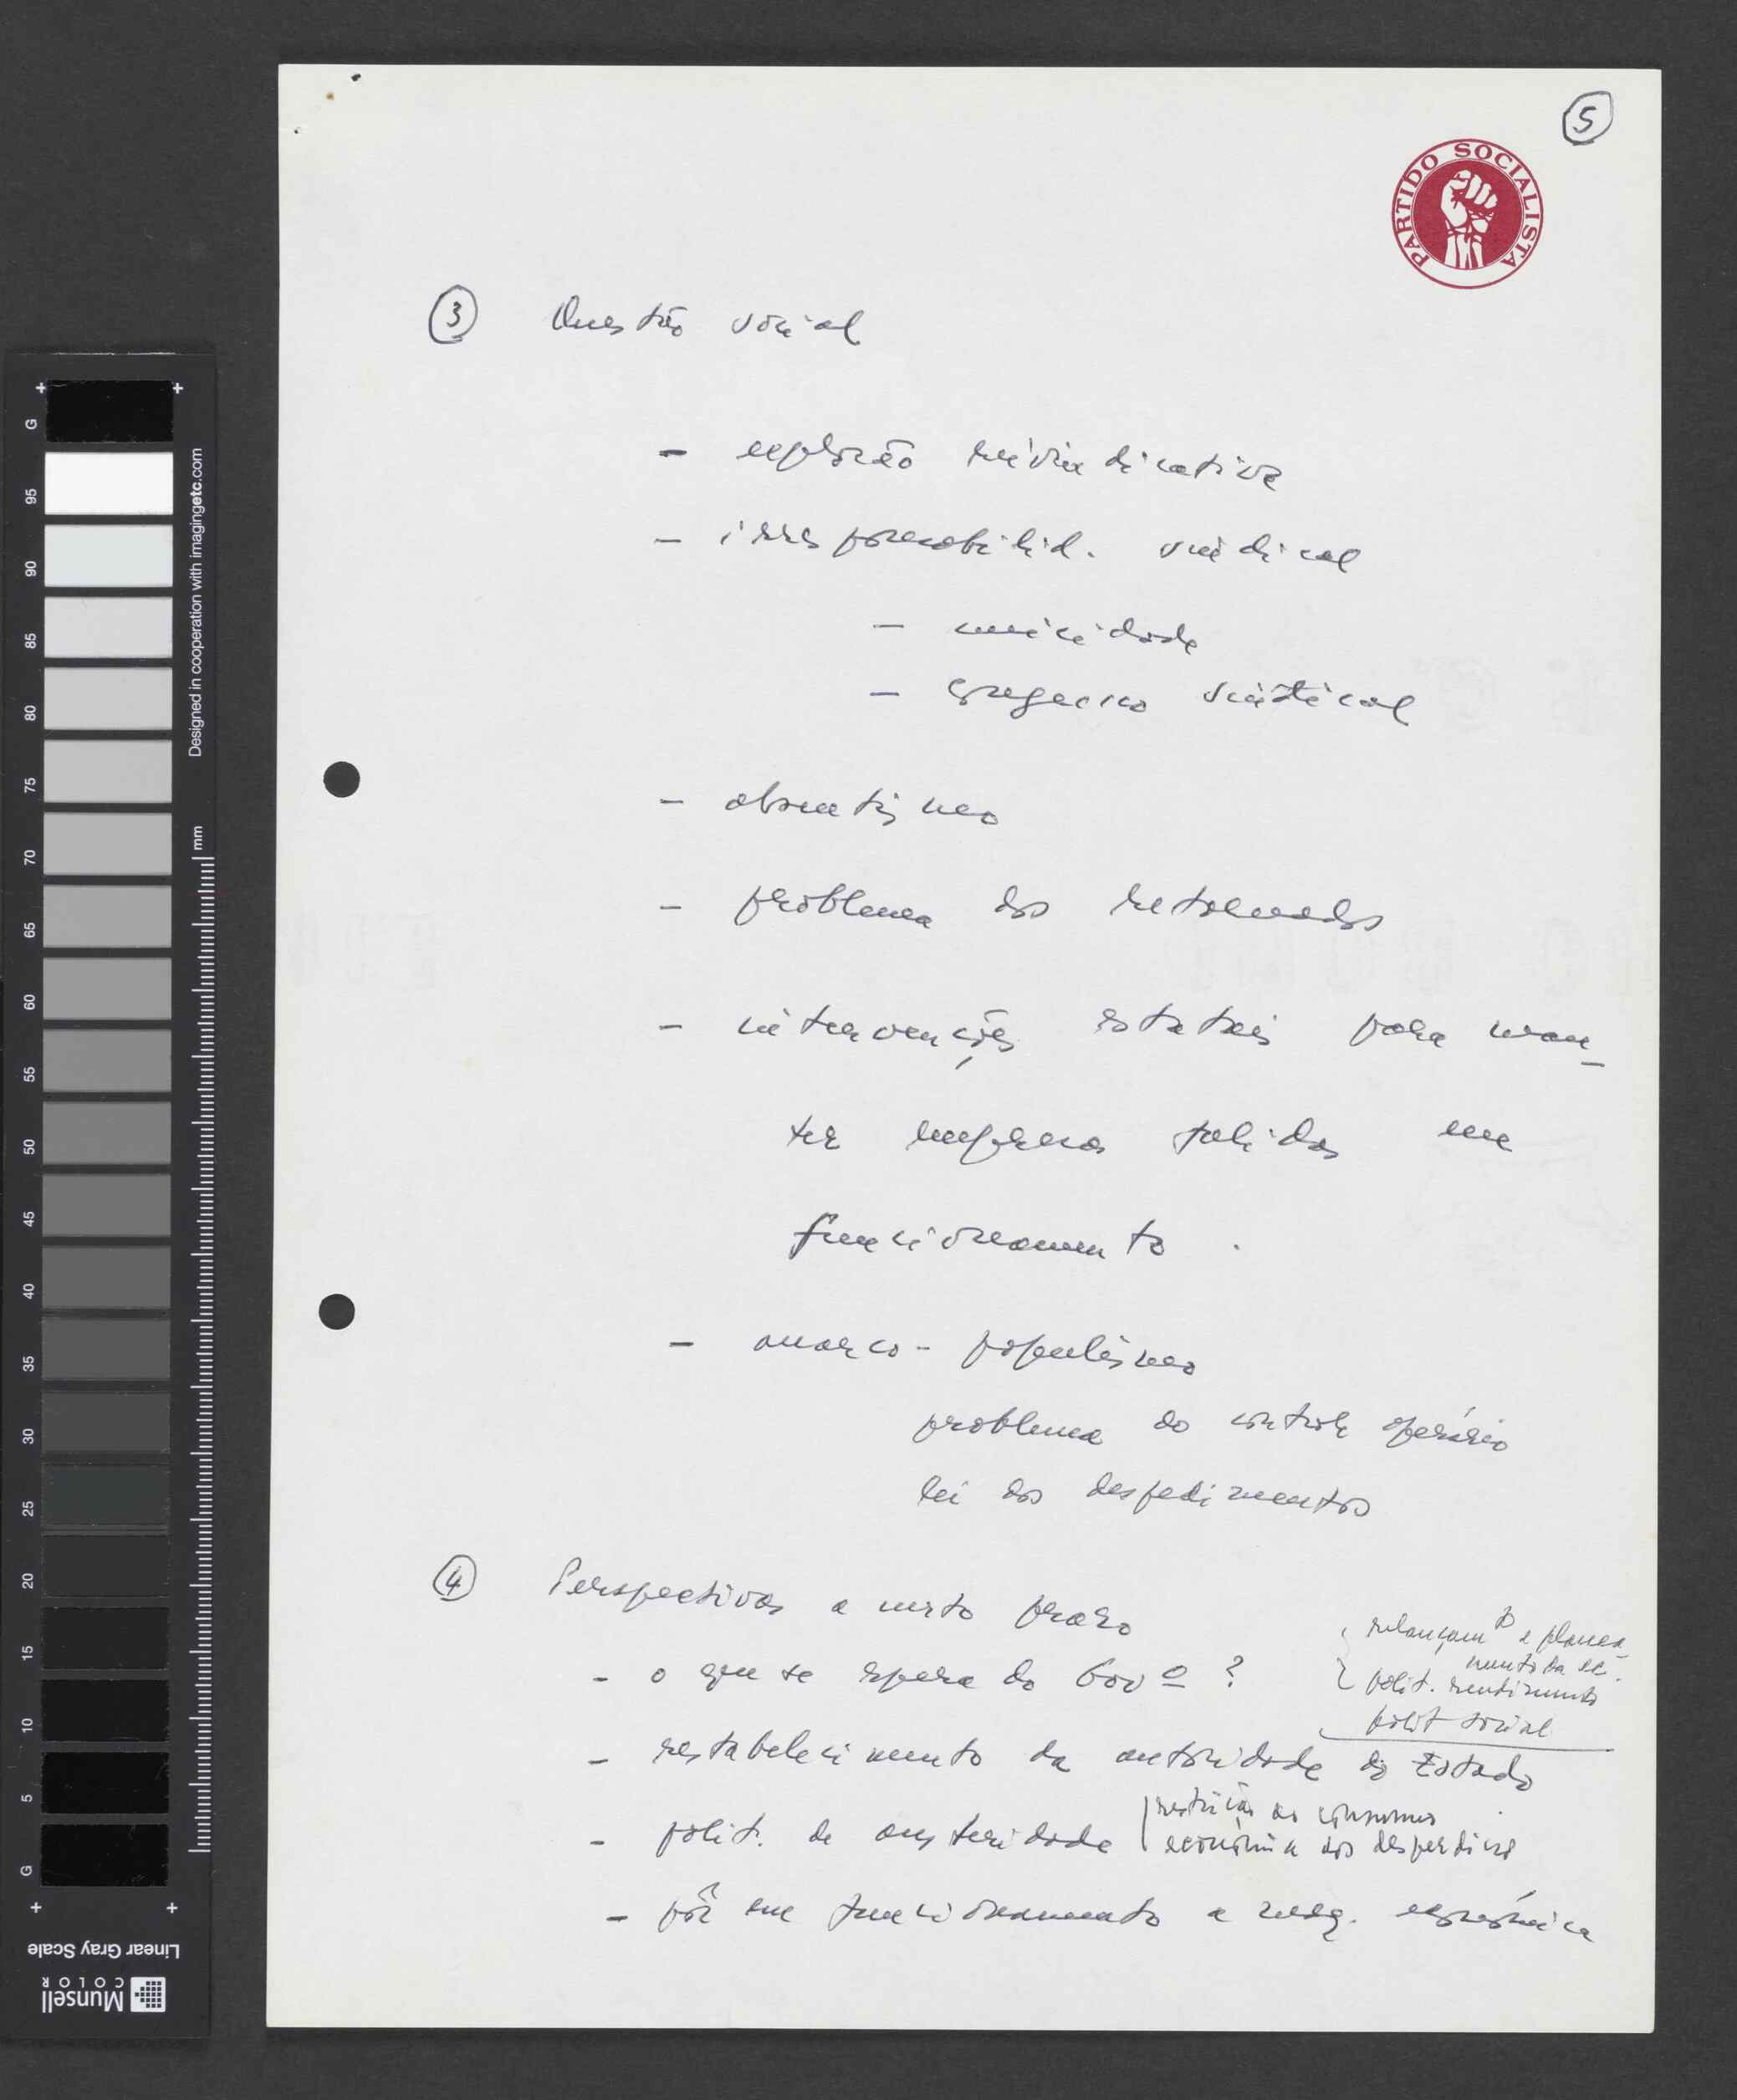 5
PARTIDO SOCIALISTA
3 Questão social
- explosão reivindicativa
- irresponsabilid. sindical
- unicidade
- sindical
- absentismo
- problema dos retornados
- intervenções estatais para man-
ter empresas falidas em
funcionamento.
- anarco-populismo
problema do controle operário
lei dos despedimentos
4 Perspectivas a curto prazo
- o que se espera do Govº?
relançamto e planea-
mento da ec.
polit. rendimentos
polit social
- restabelecimento da autoridade do Estado
- polit. de austeridade
restrição ao consumo
economia dos desperdícios
- pôr em funcionamento a máq. económica
G 95 90 85 80 75 70 65 60 55 50 45 40 35 30 25 20 15 10 5 G
mm
Designed in cooperation with imagingetc.com
Linear Gray Scale
Munsell
COLOR